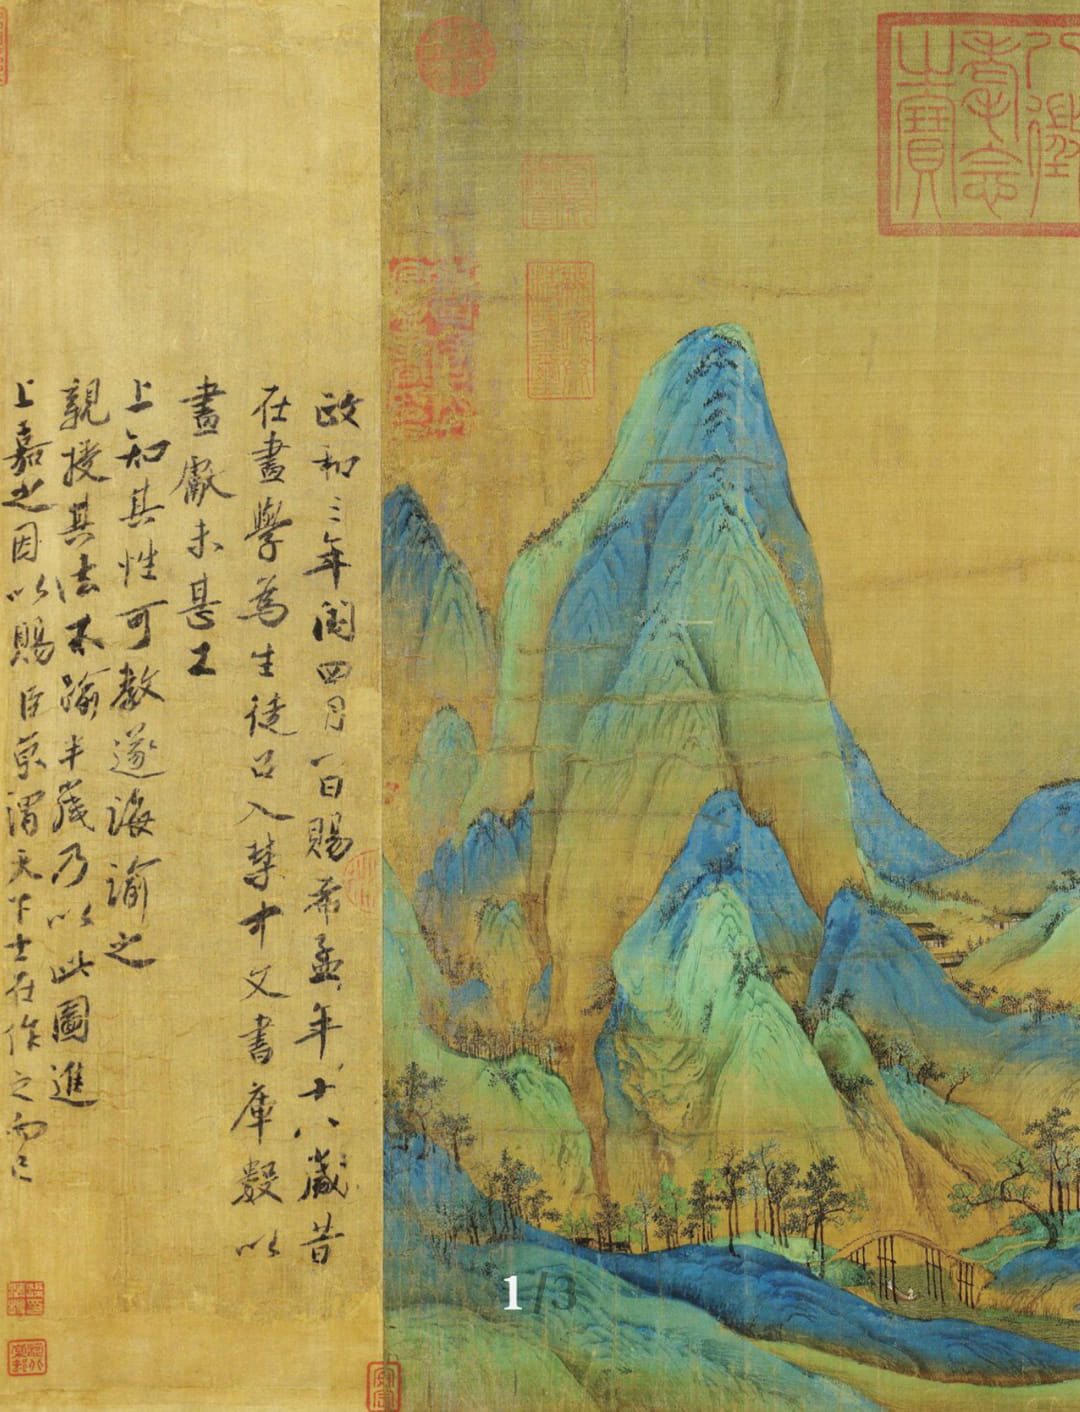 八徵耄念之寶
政和三年閏四月一日賜希孟年十八歲昔
在畫學為生徒召入禁中文書庫數以
畫獻未甚工
上知其性可教遂誨諭之
親授其法不踰半歲乃以此圖進
上嘉之因以賜臣京謂天下士在作之而已
1/3